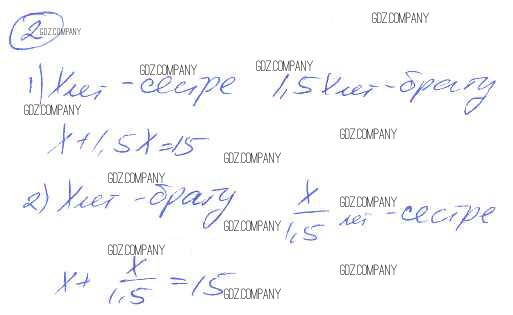 GDZ.COMPANY
2 GDZ.COMPANY
GDZ.COMPANY GDZ.COMPANY
1) X лет - сестре 1,5X лет - брату
GDZ.COMPANY
GDZ.COMPANY
X + 1,5X = 15
GDZ.COMPANY
GDZ.COMPANY
2) X лет - брату X/1,5 лет - сестре
GDZ.COMPANY
GDZ.COMPANY
GDZ.COMPANY
X + X/1,5 = 15
GDZ.COMPANY
GDZ.COMPANY